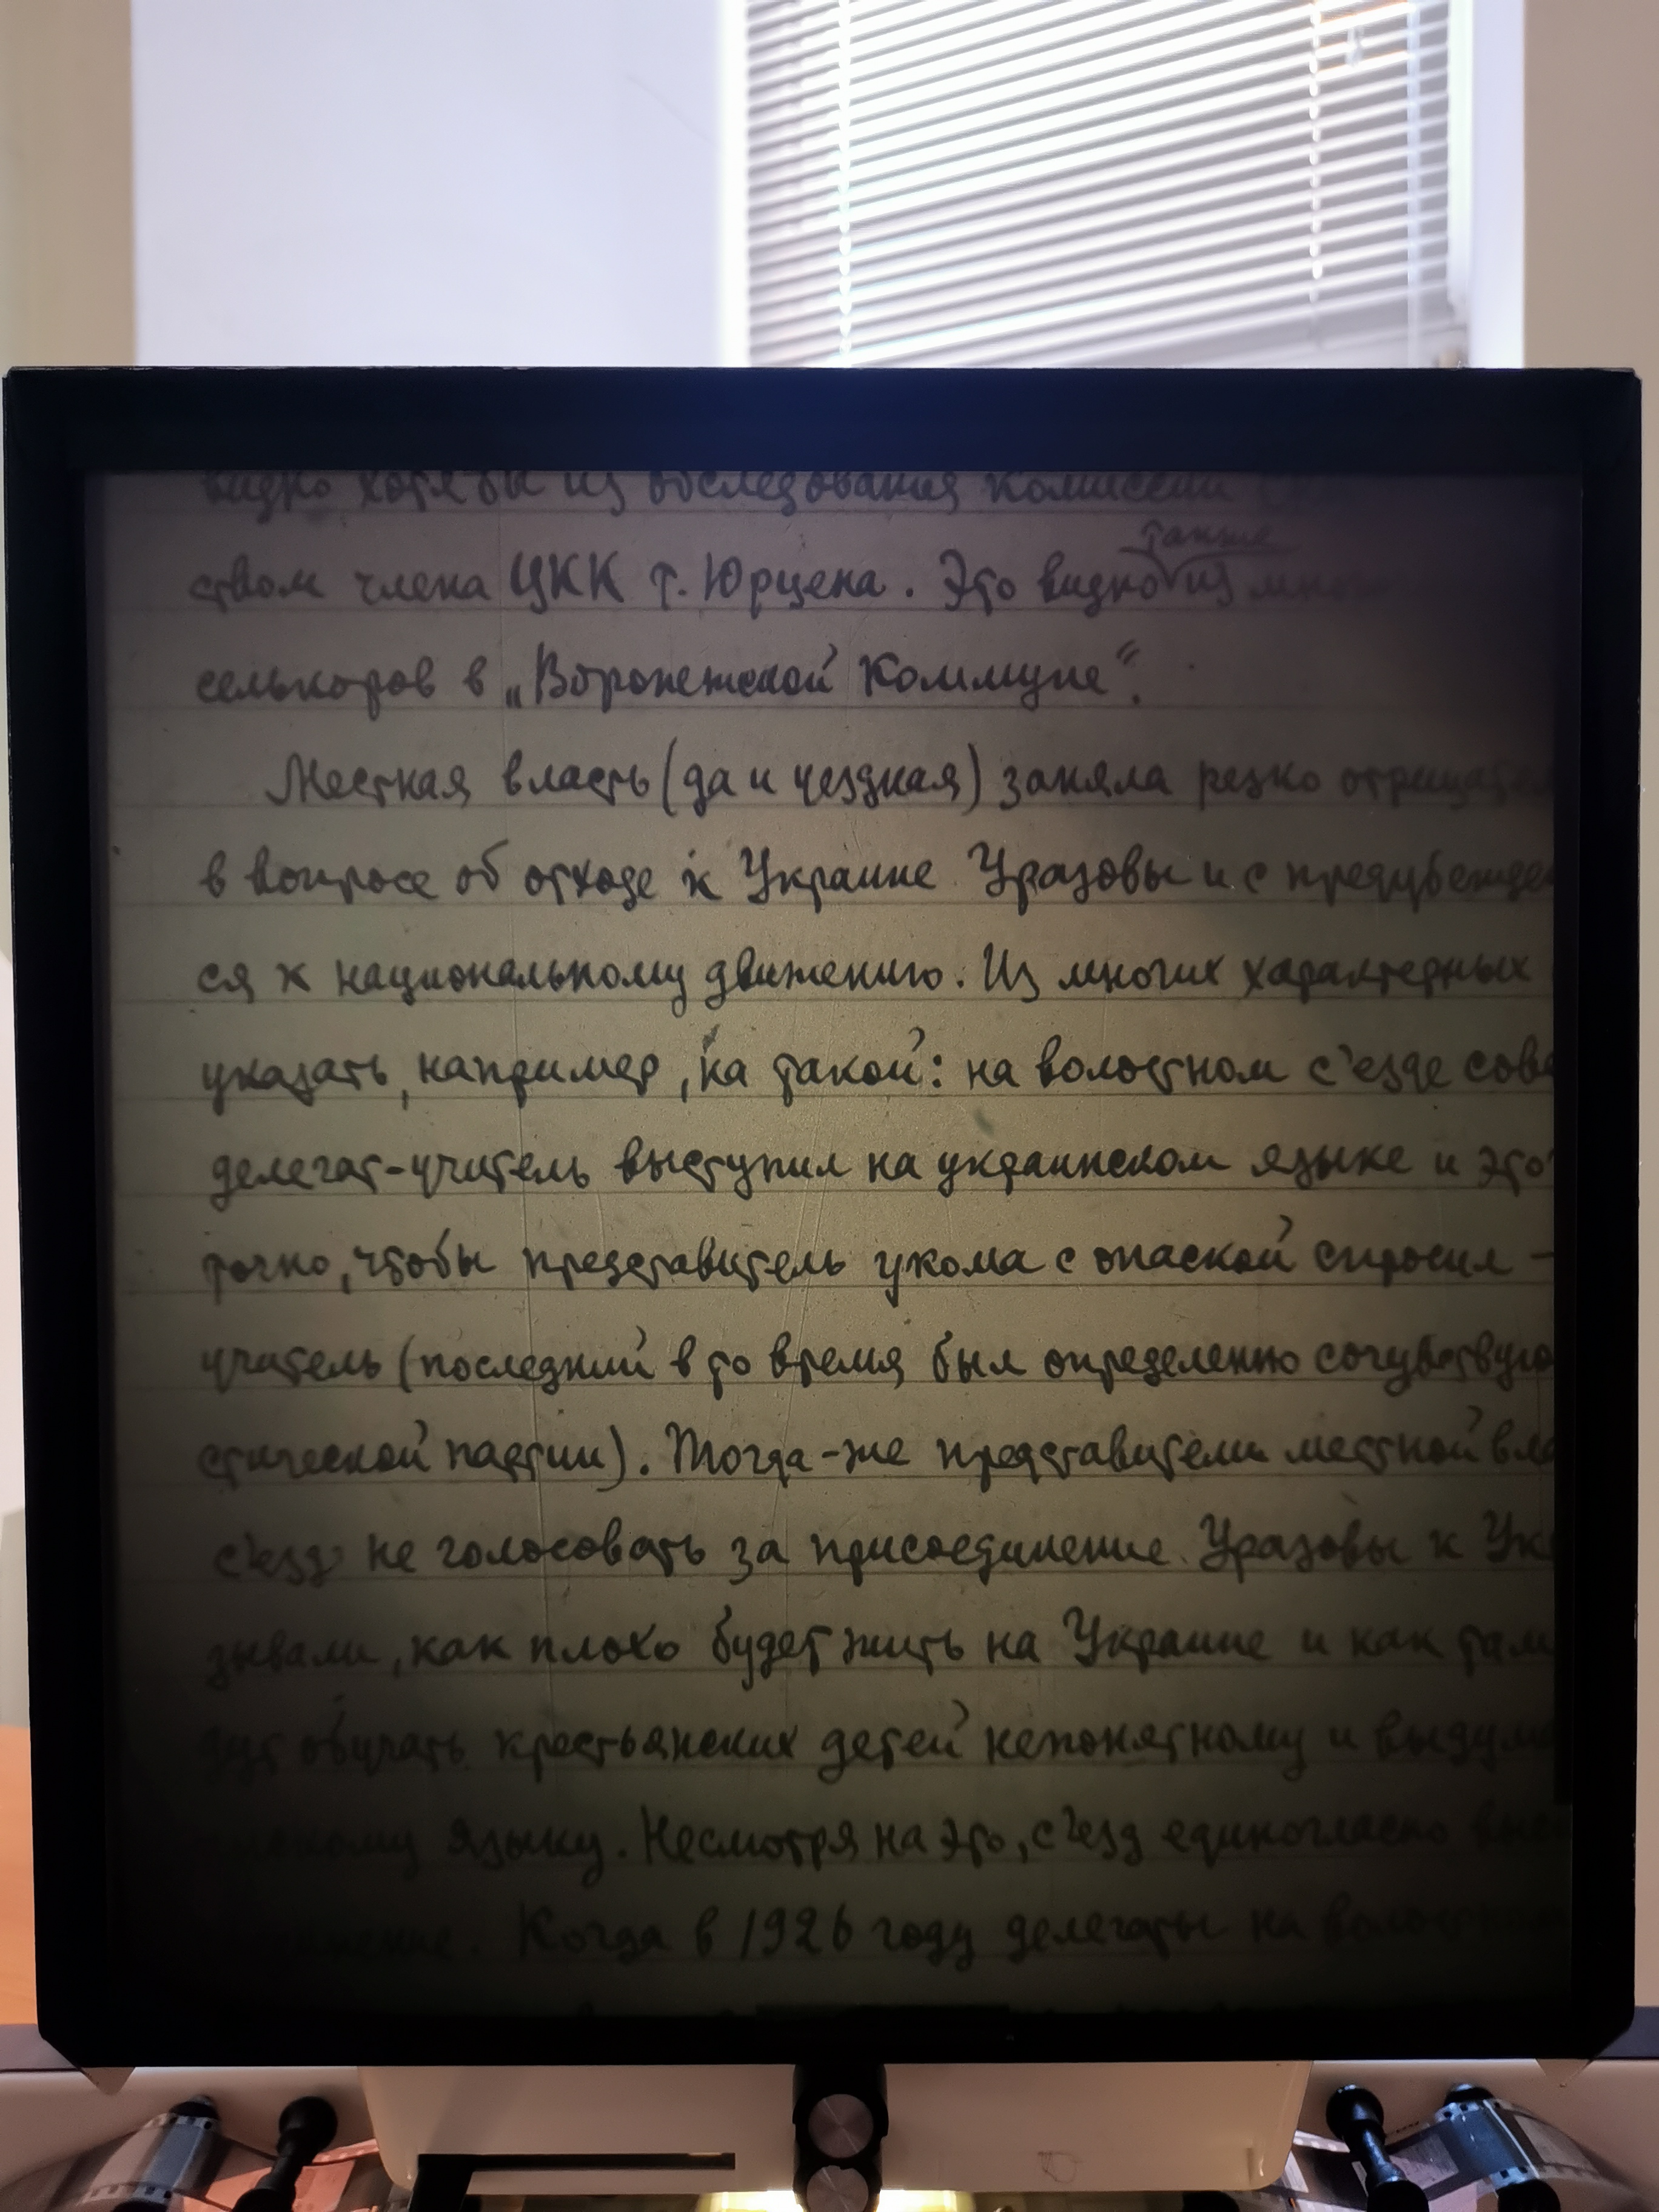 видно хотя бы из обследования комиссии
также
ством члена ЦКК т. Юрцена. Это видно из мно
селькоров в „Воронежской Коммуне“.
Местная власть (да и уездная) заняла резко отрицател
в вопросе об отходе к Украине Уразовы и с предубежде
ся к национальному движению. Из многих характерных
указать, например, на такой: на волостном с'езде сове
делегат-учитель выступил на украинском языке и это
точно, чтобы представитель укома с опаской спросил -
учитель (последний в то время был определенно сочувствую
стической партии). Тогда-же представители местной вла
с'езд не голосовать за присоединение Уразовы к Ук
зывали, как плохо будет жить на Украине и как там
дут обучать крестьянских детей непонятному и выдум
языку. Несмотря на это, с'езд единогласно вы
Когда в 1926 году делегаты на волостном